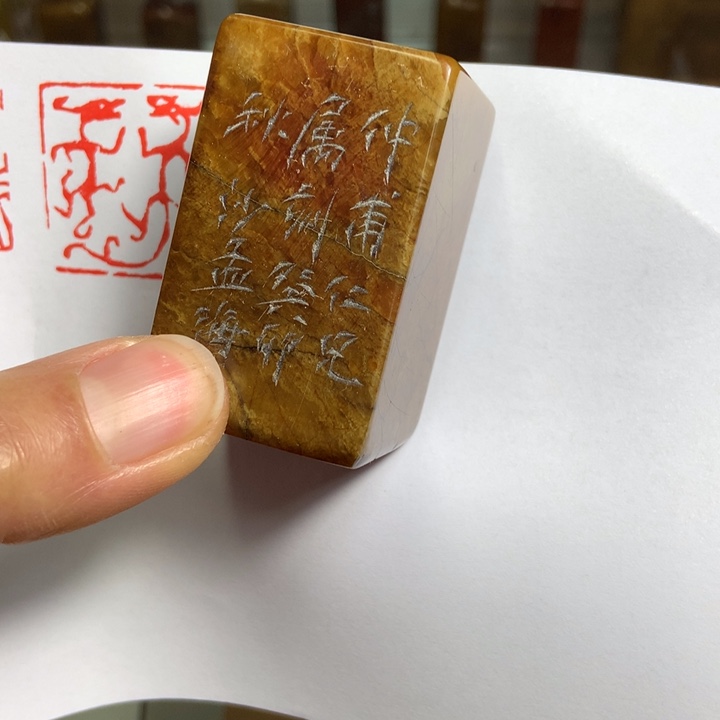 仲甫仁兄
属癸卯
秋沙孟海